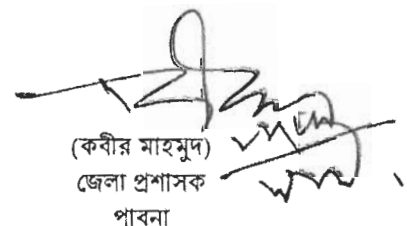 (কবীর মাহমুদ)
জেলা প্রশাসক
পাবনা